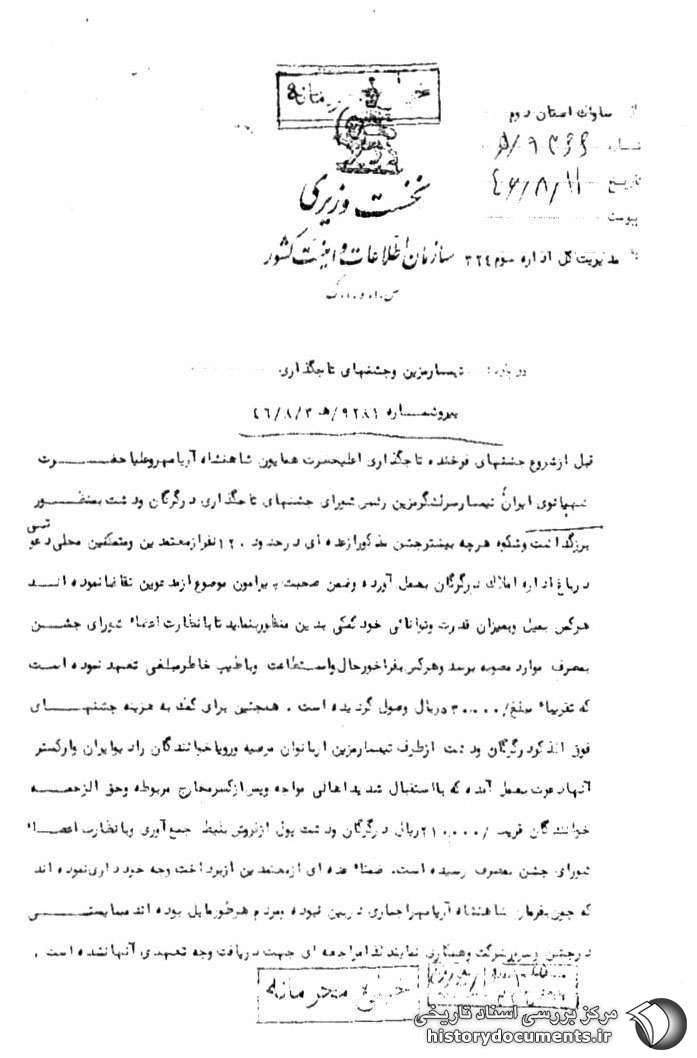 خیلی محرمانه
از ساواک استان دوم
شماره ۹۴۶۶/ه
تاریخ ۴۶/۸/۱۱
پیوست
نخست وزیری
سازمان اطلاعات و امنیت کشور
به مدیریت کل اداره سوم ۳۲۴
س.ا.و.ا.ک
درباره تیمسار مزین و جشنهای تاجگذاری
پیرو شماره ۹۲۸۱/ه ۴۶/۸/۳
قبل از شروع جشنهای فرخنده تاجگذاری اعلیحضرت همایون شاهنشاه آریامهر و علیا حضرت
شهبانوی ایران تیمسار سرلشگر مزین رئیس شورای جشنهای تاجگذاری در گرگان و دشت بمنظور
برزگداشت و شکوه هرچه بیشتر جشن مذکور از عده ای در حدود ۱۲۰ نفر از معتمدین و متمکنین محلی دعوتی
در باغ اداره املاک در گرگان بعمل آورده و ضمن صحبت پیرامون موضوع از مدعوین تقاضا نموده اند
هرکس بمیل و بمیزان قدرت و توانائی خود کمکی بدین منظور بنماید تا با نظارت اعضاء شورای جشن
بمصرف موارد مصوبه برسد و هرکس بفراخور حال و استطاعت و با طیب خاطر مبلغی تعهد نموده است
که تقریباً مبلغ ریال وصول گردیده است . همچنین برای کمک به هزینه جشنهای
فوق الذکر در گرگان و دشت از طرف تیمسار مزین از بانوان مرضیه و رویا خوانندگان رادیو ایران و ارکستر
آنها دعوت بعمل آمده که با استقبال شدید اهالی مواجه و پس از کسر مخارج مربوطه و حق الزحمه
خوانندگان قریب ۲۱۰,۰۰۰/ ریال در گرگان و دشت پول از فروش بلیط جمع آوری و با نظارت اعضاء
شورای جشن بمصرف رسیده است. ضمناً عده ای از معتمدین از پرداخت وجه خودداری نموده اند
که چون بفرمان شاهنشاه آریامهر اجباری در بین نبوده و مردم هرطور مایل بوده اند میبایستی
در جشن و سرور شرکت و همکاری نمایند لذا مراجعه ای جهت دریافت وجه تعهدی آنها نشده است .
خیلی محرمانه
مرکز بررسی اسناد تاریخی
historydocuments.ir